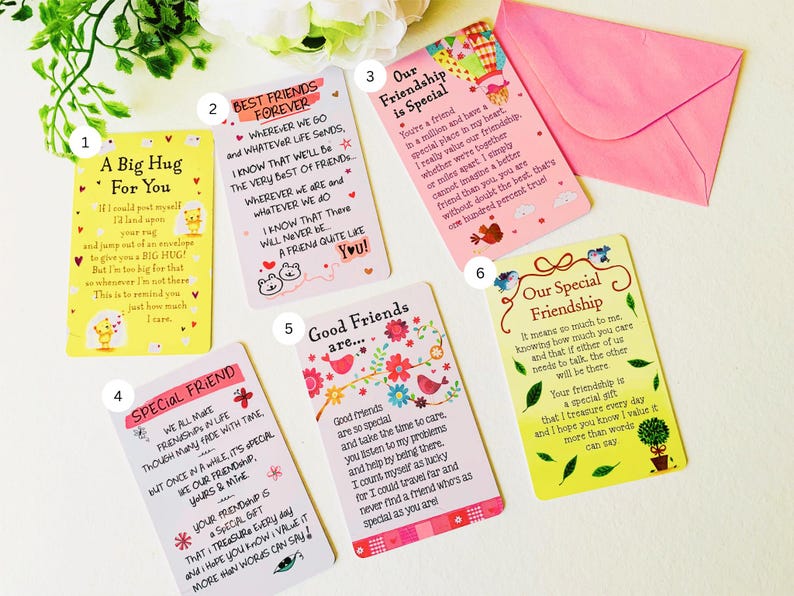 1
A Big Hug
For You
If I could post myself
I'd land upon
your rug
and jump out of an envelope
to give you a BIG HUG!
But I'm too big for that
so whenever I'm not there
This is to remind you
just how much
I care.
2
BEST FRIENDS
FOREVER
WHEREVER WE GO
and WHATEVER LIFE SENDS,
I KNOW THAT WE'LL BE
THE VERY BEST OF FRIENDS...
WHEREVER WE ARE and
WHATEVER WE DO
I KNOW THAT THERE
WILL NEVER BE...
A FRIEND QUITE LIKE
YOU!
3
Our
Friendship
is Special
You're a friend
in a million and have a
special place in my heart,
I really value our friendship,
whether we're together
or miles apart. I simply
cannot imagine a better
friend than you, you are
without doubt the best, that's
one hundred percent true!
4
SPECIAL FRIEND
WE ALL MAKE
FRIENDSHIPS IN LIFE
THOUGH MANY FADE WITH TIME,
BUT ONCE IN A WHILE, IT'S SPECIAL
LIKE OUR FRIENDSHIP,
YOURS & MINE.
YOUR FRIENDSHIP IS
a SPECIAL GIFT
THAT I TREASURE EVERY DAY
and I HOPE YOU KNOW I VALUE IT
MORE THAN WORDS CAN SAY!
5
Good Friends
are...
Good friends
are so special
and take the time to care,
you listen to my problems
and help by being there.
I count myself as lucky
for I could travel far and
never find a friend who's as
special as you are!
6
Our Special
Friendship
It means so much to me,
knowing how much you care
and that if either of us
needs to talk, the other
will be there.
Your friendship is
a special gift
that I treasure every day
and I hope you know I value it
more than words
can say.